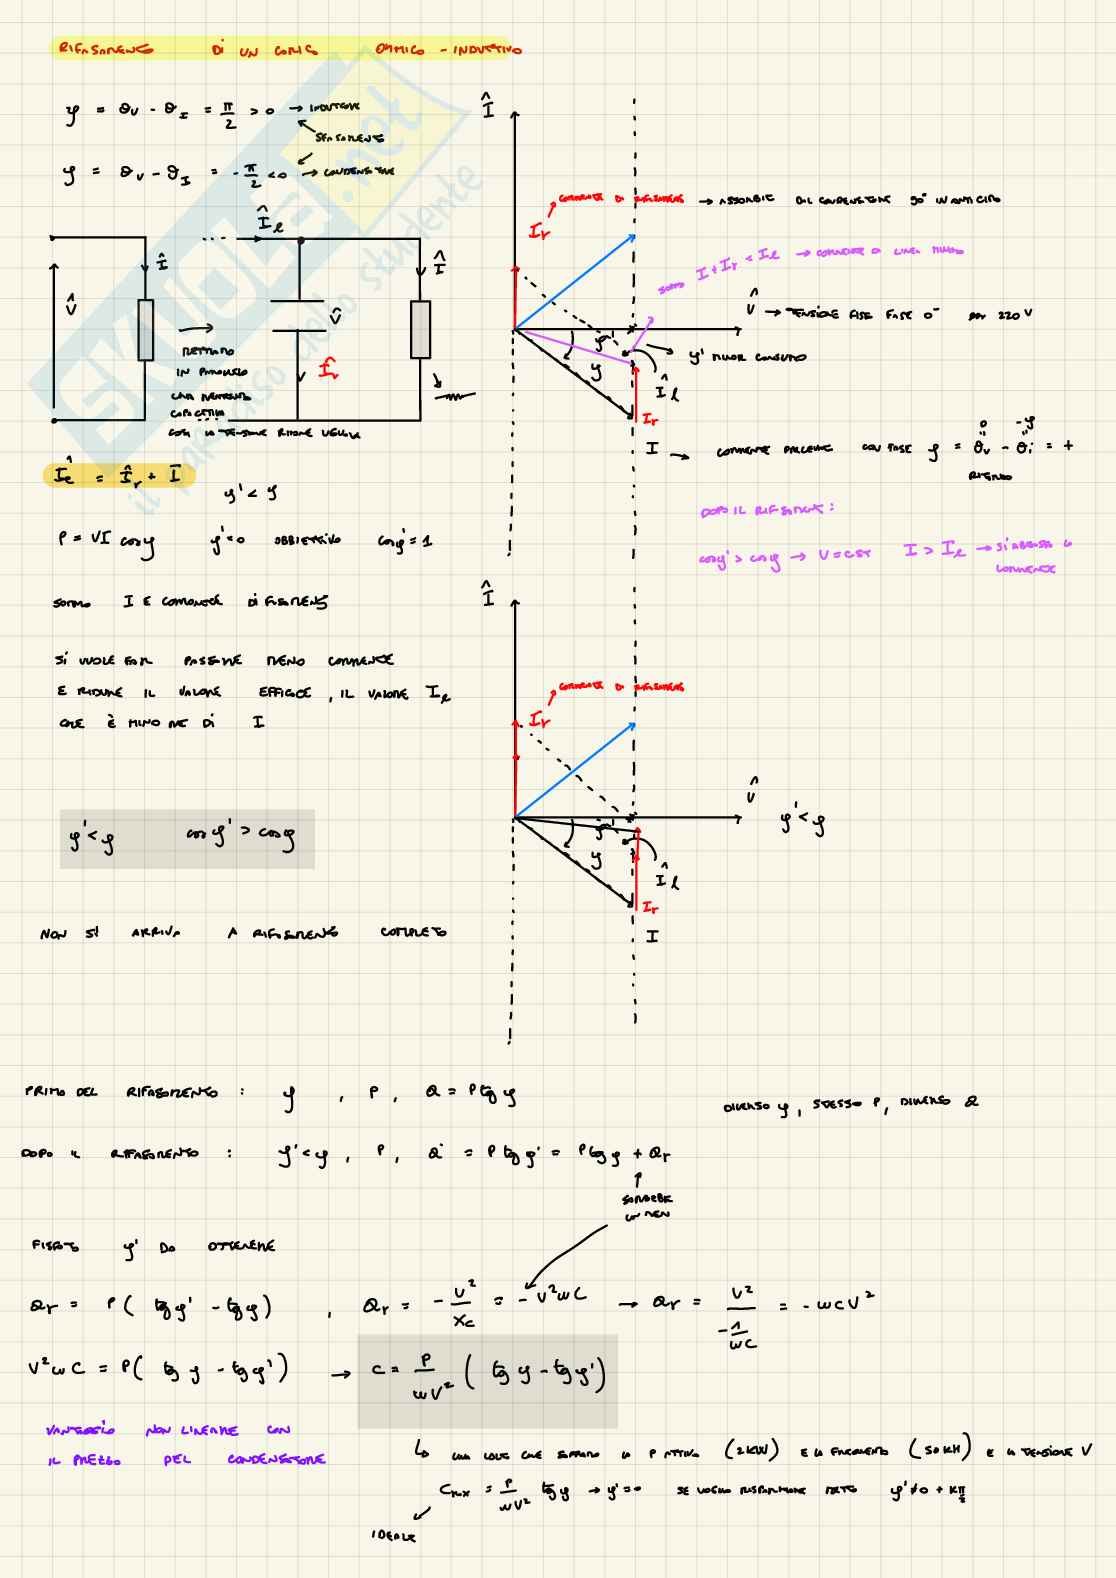 RIFASAMENTO DI UN CARICO OHMICO - INDUTTIVO
φ = θv - θI = π/2 > 0 → INDUTTORE
SFASAMENTO
φ = θv - θI = -π/2 < 0 → CONDENSATORE
Î
V̂
METTIAMO
IN PARALLELO
UNA
COSÌ LA TENSIONE RIMANE UGUALE
Îℓ
V̂
Îr
Î
Îe = Îr + I
φ' < φ
P = VI cosφ φ' = 0 OBBIETTIVO cosφ' = 1
SOMMO I E CORRENTE DI RIFASAMENTO
SI VUOLE FAR PASSARE MENO CORRENTE
E RIDURRE IL VALORE EFFICACE, IL VALORE Iℓ
CHE È MINORE DI I
φ' < φ cosφ' > cosφ
NON SI ARRIVA A RIFASAMENTO COMPLETO
Î
Ir CORRENTE DI RIFASAMENTO → ASSORBITE DAL CONDENSATORE 90° IN ANTICIPO
SOMMO I + Ir < Iℓ → CORRENTE DI LINEA MINORE
V̂ → TENSIONE FASE 0° 220 V
φ' MINOR CONSUMO
φ'
φ
Îℓ
Ir
I → CORRENTE CON FASE φ = θv - θi = +
0 -φ
DOPO IL RIFASAMENTO:
cosφ' > cosφ → V = CST I > Iℓ → SI ABBASSA LA
CORRENTE
Î
Ir CORRENTE DI RIFASAMENTO
V̂ φ' < φ
φ'
φ
Îℓ
Ir
I
PRIMA DEL RIFASAMENTO : φ , P , Q = P tgφ
DIVERSO φ, STESSO P, DIVERSO Q
DOPO IL RIFASAMENTO : φ' < φ , P , Q' = P tgφ' = P tgφ + Qr
SAREBBE
UN MENO
FISSATO φ' DA OTTENERE
Qr = P( tgφ' - tgφ) , Qr = - V²/Xc = - V²ωC → Qr = V²/(-1/ωC) = - ωCV²
V²ωC = P( tgφ - tgφ') → C = P/ωV² ( tgφ - tgφ')
VANTAGGIO NON LINEARE CON
IL PREZZO DEL CONDENSATORE
↳ UNA VOLTA CHE SAPPIAMO LA P ATTIVA (2KW) E LA FREQUENZA (50KH) E LA TENSIONE V
Cmax = P/ωV² tgφ → φ' = 0 SE VOGLIO RISPARMIARE METTO φ' ≠ 0 + Kπ/2
IDEALE
SKUOLA.net
il paradiso dello studente